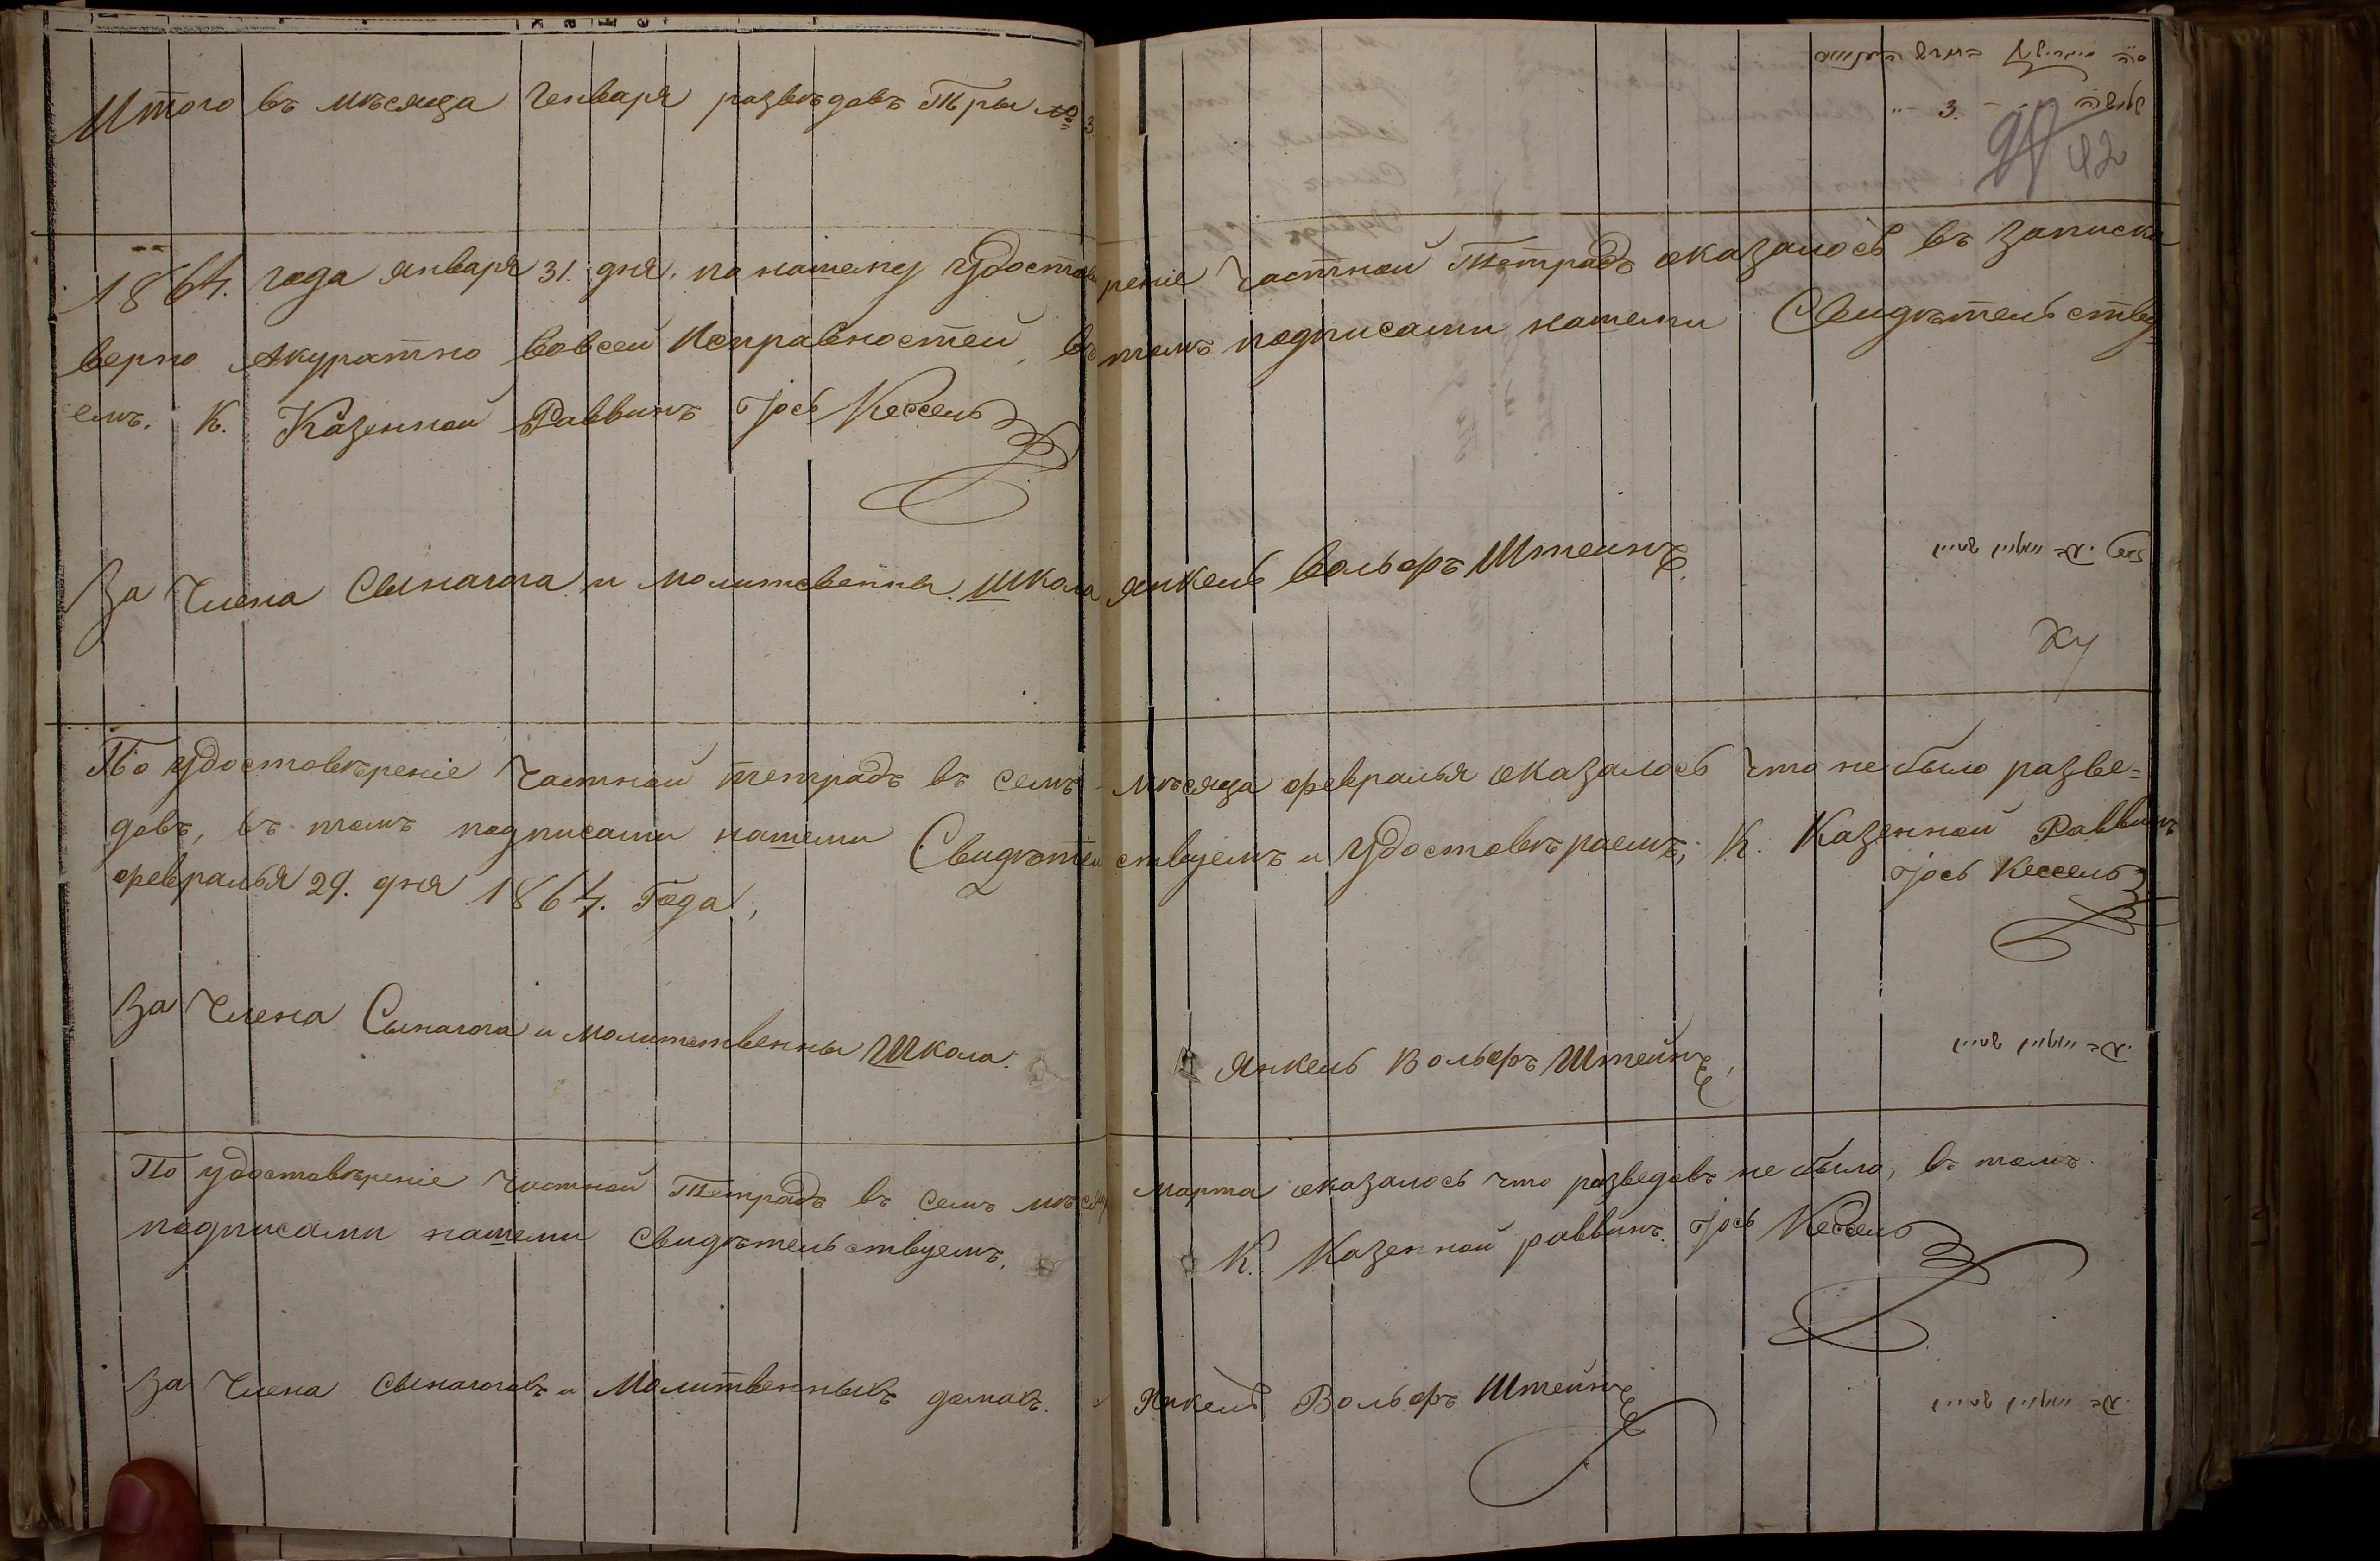 Итого въ мѣсяца Генваря разведовъ Три № 3
- 3 -
42
1864. года Января 31. дня. по нашему Удостоверение частной Тетрадъ оказалось въ записки
верно Акуратно вовсей Исправностей, въ томъ подписами нашеми Свидѣтельству-
емъ. К. Казенной Раввинъ Іось Кессель
За Члена Сынагога и молитовенны. Школа Янкель Вольфъ Штейнъ
По Удостовѣреніе Частной тетрадъ въ семъ мѣсяца февралья оказалось что небыло разве=
довъ, въ томъ подписами нашеми Свидѣтельствуемъ и Удостовѣраемъ; К. Казенной Раввинъ
февралья 29. дня 1864. Года, Іось Кессель
За Члена Сынагога и молитетвенны Школа. Янкель Вольфъ Штейнъ
יעקב וואלף שטיין
По удостовѣреніе Частной Тетрадъ въ семъ мѣсяца Марта оказалось что разведовъ не было, въ томъ
подписами нашеми Свидѣтельствуемъ. К. Казенной раввинъ. Іось Кессель
За Члена Сынагоговъ и Молитвенныхъ домовъ. Янкель Вольфъ Штейнъ
יעקב וואלף שטיין